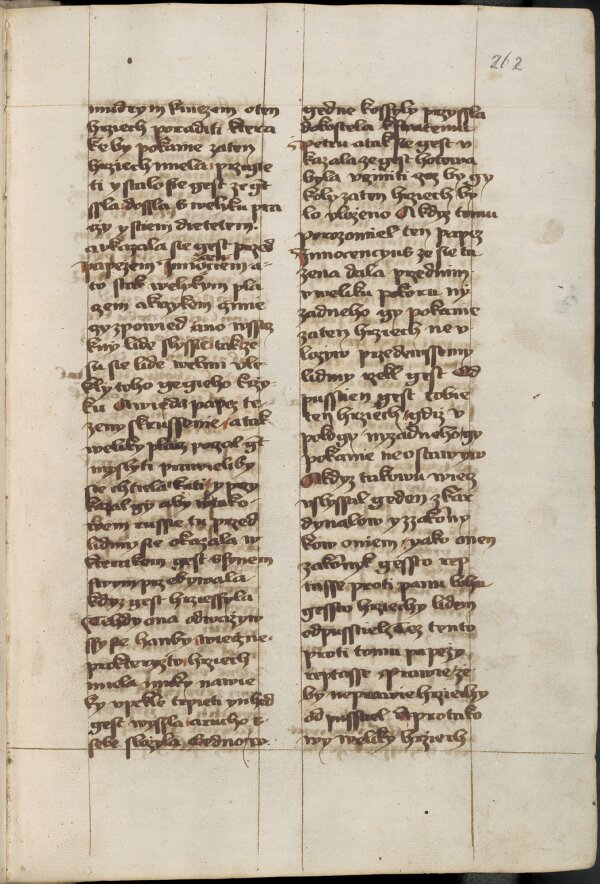 262
mudrym kniezem o ten
hrziech poraditi ktera
ke by pokanie za ten
hrziech miela przigie
ti y stalo sie gest ze gt
ssla dossla s weliku pra
czy y s tiem dietetem
a vkazala sie gest przed
papezem Innocenciem a
to stak welikym pla
czem a krzykem czinie
gy zpowied ano wssicz
kny lide slyssie takze
su sie lide welmi vle
kly toho gegieho krzy
ku A wida papez te
zeny skrussenie a tak
weliky placz poczal gt
mysliti prawieliby
se chtiela kati y przy
kazal gy aby w tako
wem russie tu przed
lidmi sie okazala w
kterikem gest s synem
swym przebywala
kdyz gest hrziessyla
Tehdy ona odwrzyw
ssy se hanby swietsne
pro kteryzto hrziech
miela muky na wie
ky w pekle trpieti ynhed
gest wyssla a rucho s
sebe slozyla Gednow
gedne kossyly przyssla
do kostela k swatemu
Petru a tak sie gest v
kazala ze gest hotowa
byla vcziniti coz by gy
koly za ten hrziech by
lo vlozeno A kdyz tomu
porozomiel ten papez
Innocencyus ze sie ta
zena dala przed nim
v weliku pokoru ny
zadneho gy pokanie
za ten hrziech ne v
lozyw przede wssemy
lidmy rzekl gest Od
pusstien gest tobie
ten hrziech gdiz v
pokogy nyzadneho gy
pokanie neostawyw
A kdyz takowu wiecz
vslyssal geden z kar
dynalow y z zakonny
kow o niem yako onen
zakonnik gessto rep
tasse proti panu bohu
gessto hrziechy lidem
odpusstiel Tez tento
proti tomu papezy
reptasse prawie ze
by neprawie hrziechy
odpusstiel A protako
wy weliky hrziech